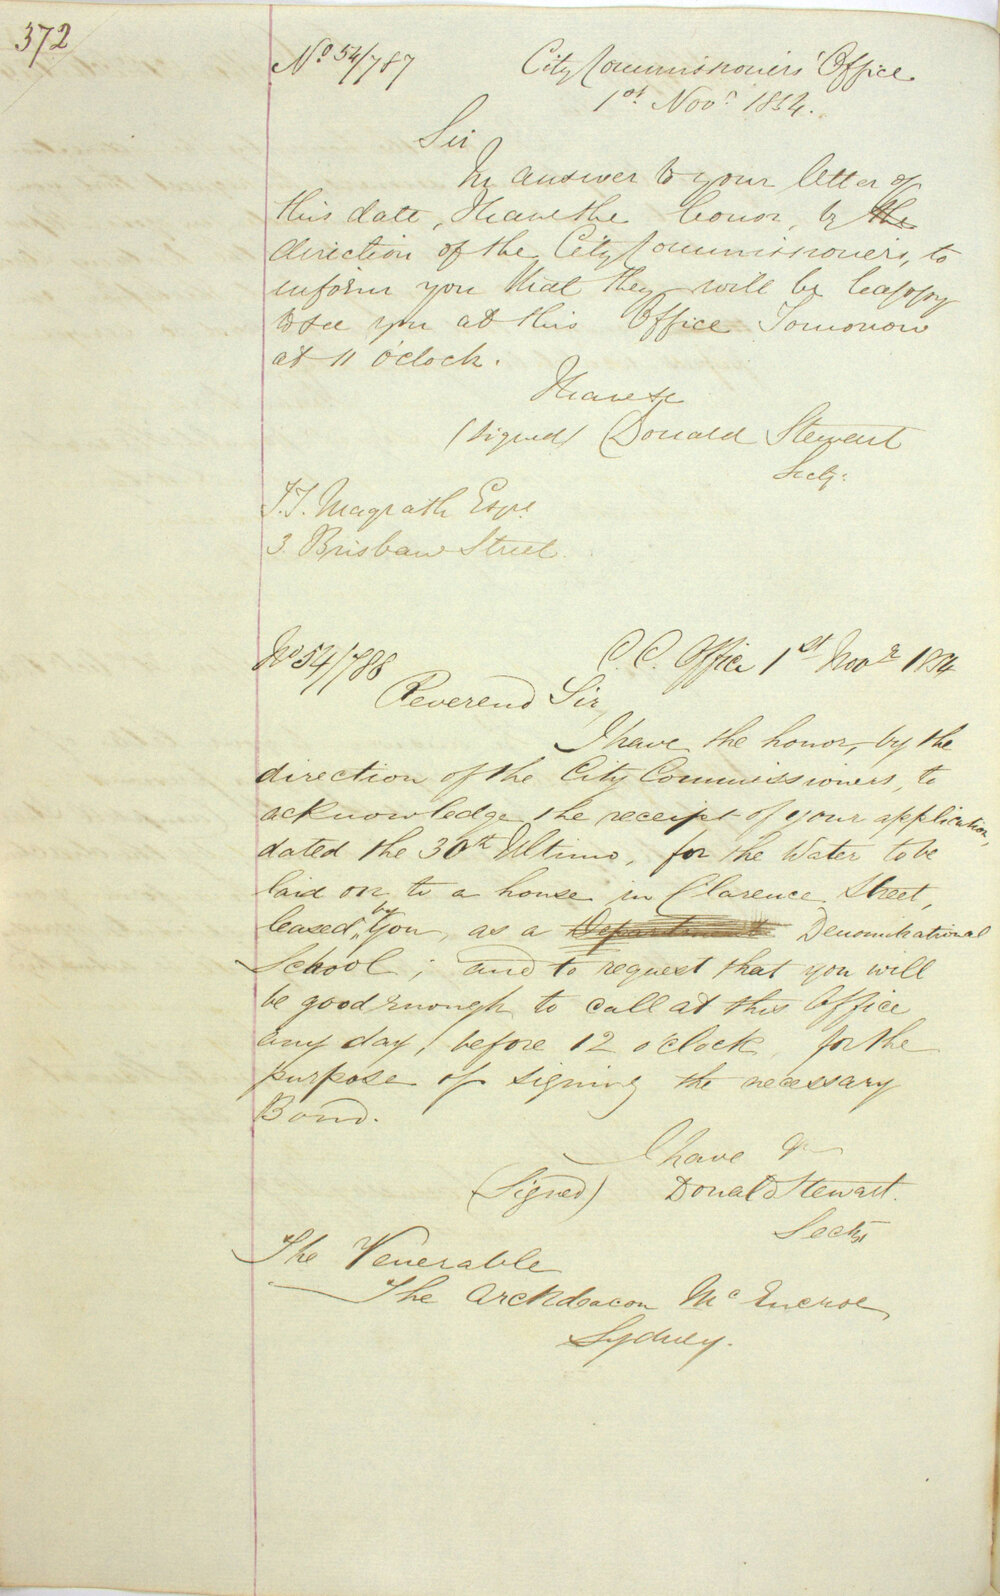 372
No 54/787 City Commissioners' Office
1st Novr 1854.
Sir
In answer to your letter of
this date, I have the honor, by the
direction of the City Commissioners, to
inform you that they will be happy
to see you at this Office Tomorrow
at 11 o'clock.
I have &c
(signed) Donald Stewart
Secty.
T.T. Magrath Esqre.
3. Brisbane Street.
No 54/788 C.C. Office 1st Novr 1854
Reverend Sir,
I have the honor, by the
direction of the City Commissioners, to
acknowledge the receipt of your application,
dated the 30th Ultimo, for the Water to be
laid on to a house in Clarence Street,
leased, by You, as a Department Denominational
School; and to request that you will
be good enough to call at this Office
any day, before 12 o'clock, for the
purpose of signing the necessary
Bond.
I have &
(Signed) Donald Stewart.
Secty
The Venerable
The Archdeacon McEncroe
Sydney.